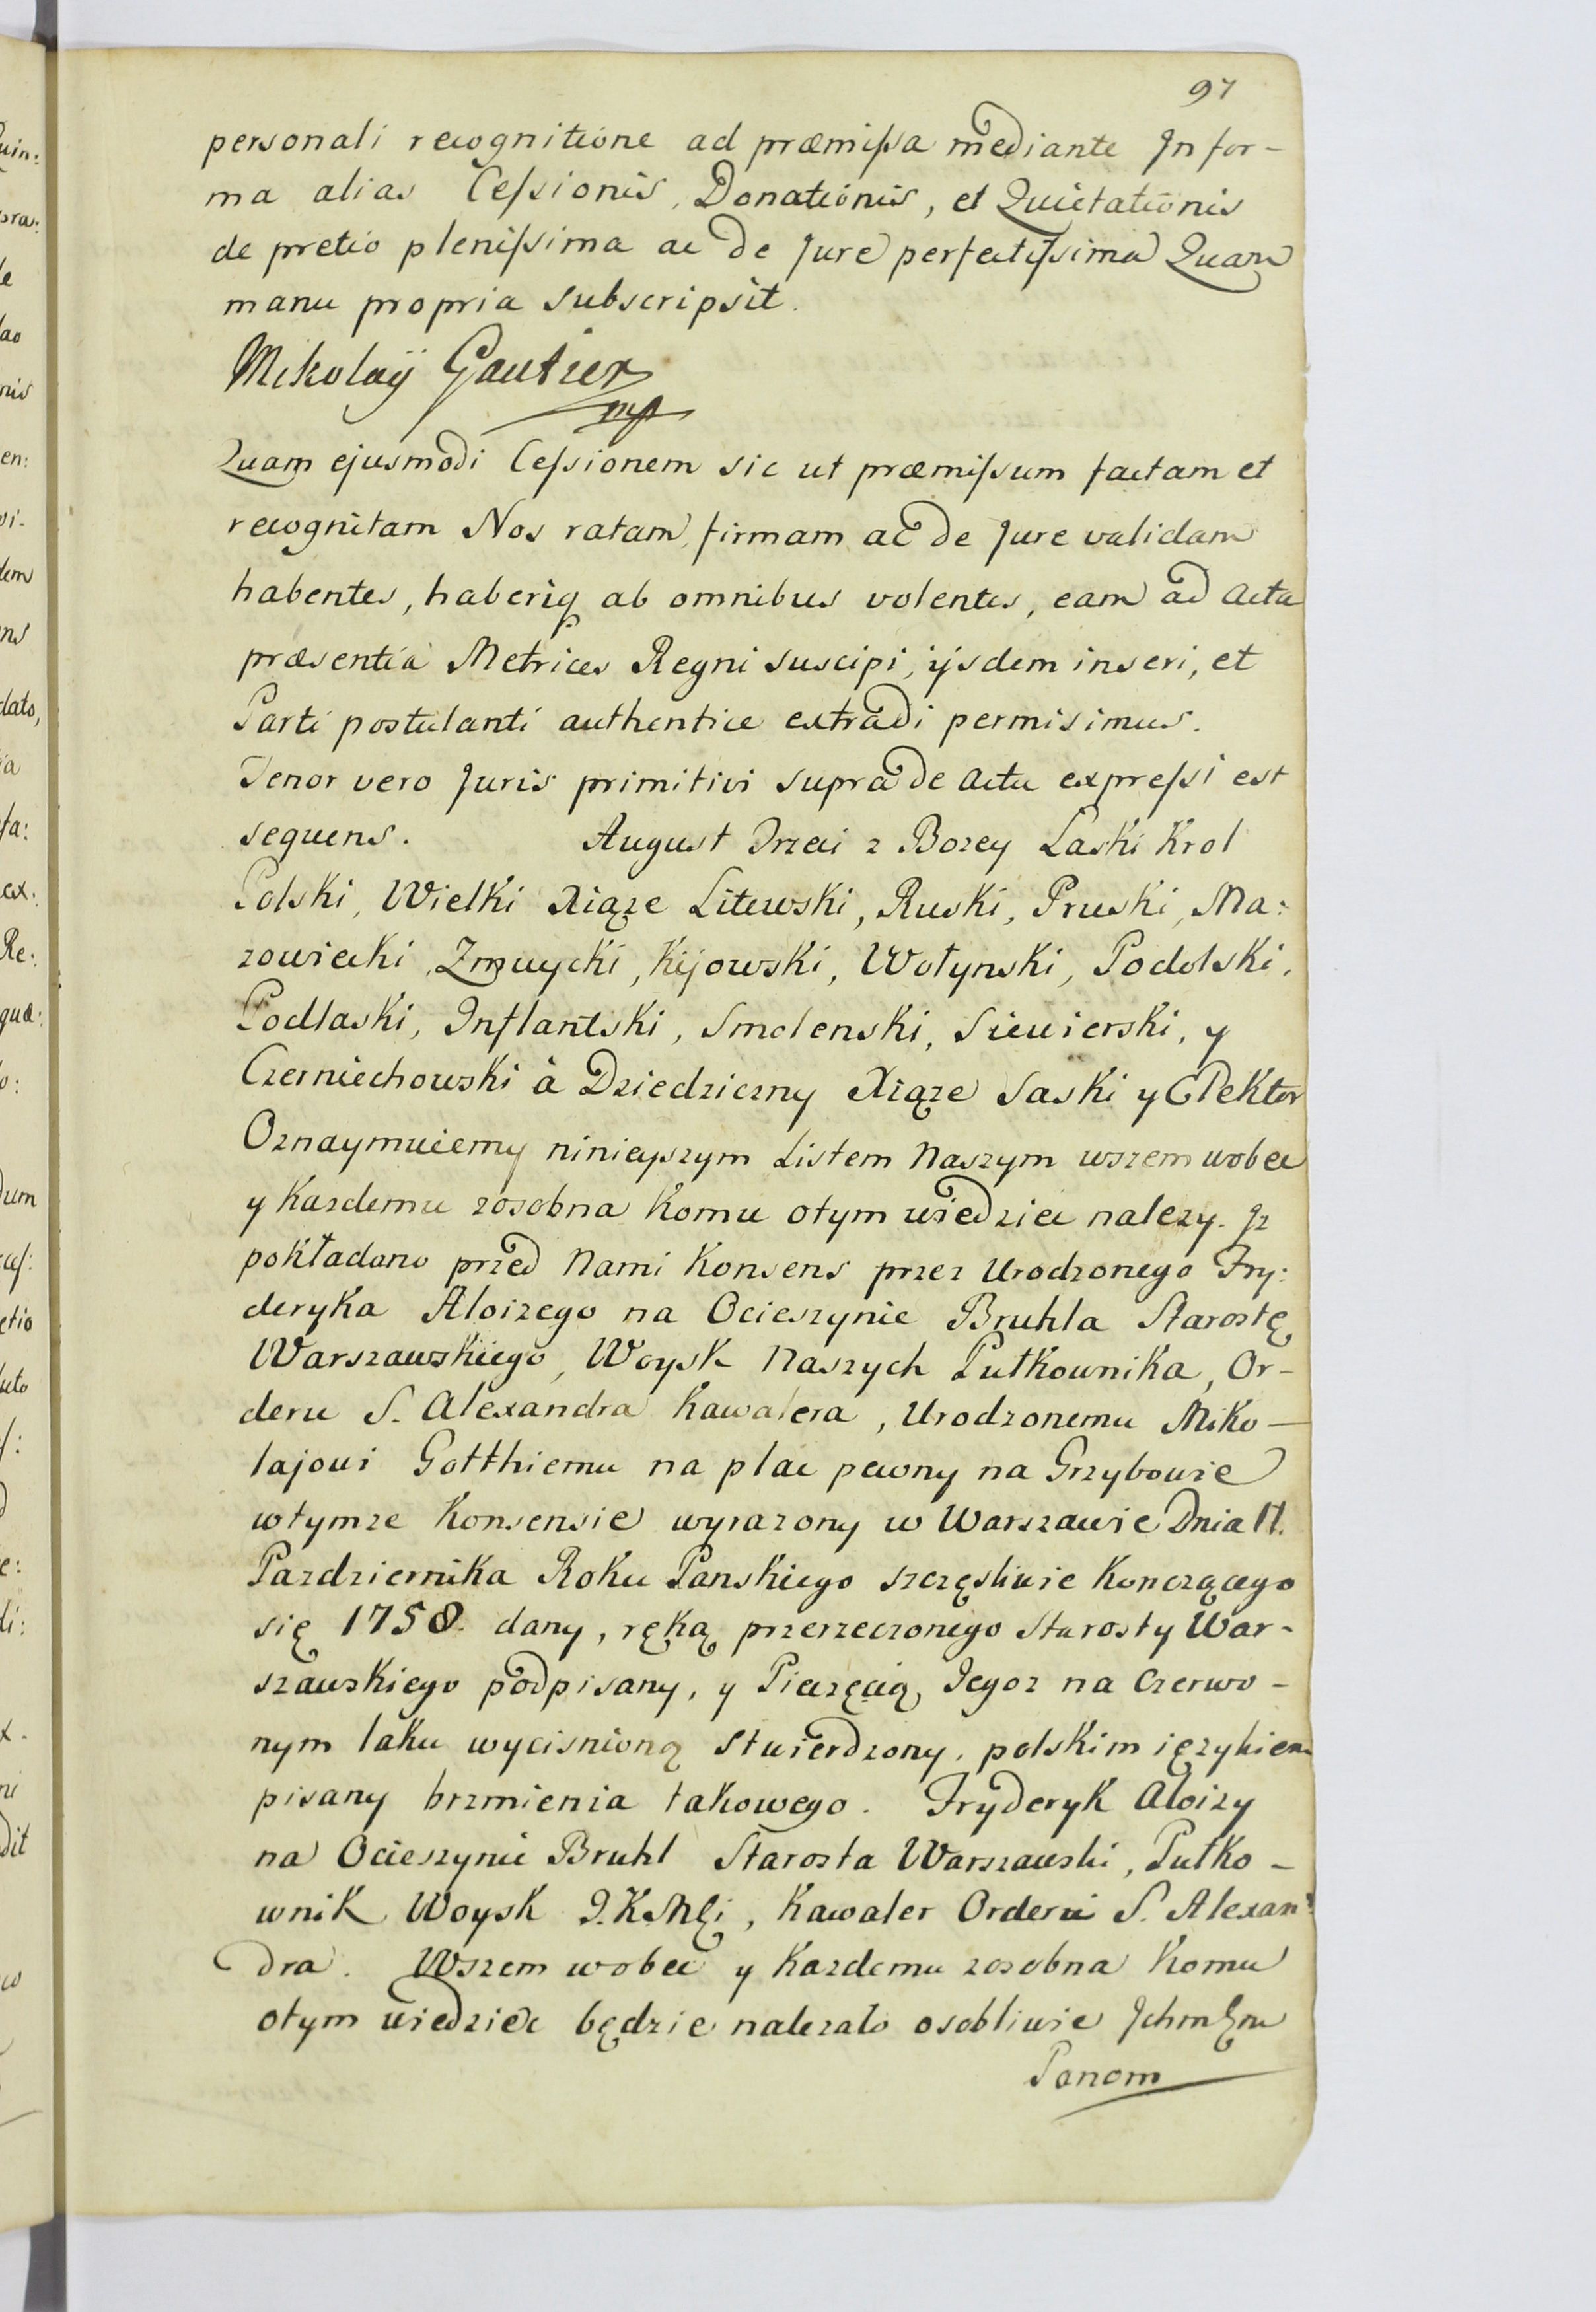 97
personali recognitione ad præmissa mediante Jn for-
ma alias Cessionis, Donationis, et Quietationis
de pretio plenissima ac de Jure perfectissima Quam
manu propria subscripsit.
Mikolaÿ Gautier
mp
Quam ejusmodi Cessionem sic ut præmissum factam et
recognitam Nos ratam, firmam ac de Jure validam
habentes, haberiq ab omnibus volentes, eam ad Acta
præsentia Metrices Regni suscipi, ijsdem inseri, et
Parti postulanti authentice extradi permisimus.
Tenor vero Juris primitivi supra de actu expressi est
sequens. August Trzeci z Bozey Laski Krol
Polski, Wielki Xiąze Litewski, Ruski, Pruski, Ma:
zowiecki, Zmuycki, Kijowski, Wołynski, Podolski,
Podlaski, Inflantski, Smolenski, Siewierski, y
Czerniechowski à Dziedziczny Xiąze Saski y Elektor
Oznaymuiemy ninieyszym Listem Naszym wszem wobec
y Kazdemu zosobna Komu otym wiedziec nalezy. Jz
pokładano przed Nami Konsens przez Urodzonego Fry:
deryka Aloizego na Ocieszynie Bruhla Starostę
Warszawskiego, Woysk Naszych Pułkownika, Or-
deru S. Alexandra Kawalera, Urodzonemu Miko-
lajowi Gotthiemu na plac pewny na Grzybowie
wtymze Konsensie wyrazony w Warszawie Dnia 17.
Pazdziernika Roku Panskiego szczęsliwie Konczącego
się 1758. dany, ręką przerzeczonego Starosty War-
szawskiego podpisany, y Pieczęcią Jegoz na Czerwo-
nym laku wycisnioną stwierdzony, polskim ięzykiem
pisany brzmienia takowego. Fryderyk Aloizy
na Ocieszynie Bruhl Starosta Warszawski, Pułko-
wnik Woysk J.K.Mci, Kawaler Orderu S. Alexan:
dra. Wszem wobec y Kazdemu zosobna Komu
otym wiedziec będzie nalezało osobliwie Jchmcm
Panom